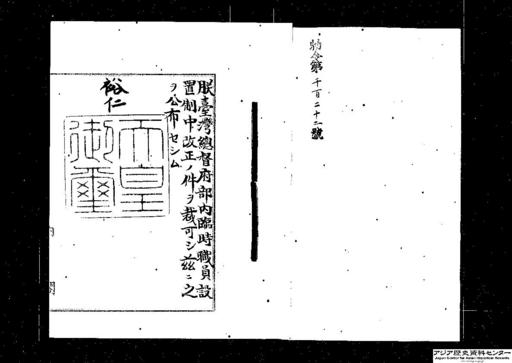 勅令第千百二十二號
朕臺灣總督府部內臨時職員設
置制中改正ノ件ヲ裁可シ茲ニ之
ヲ公布セシム
裕仁
天皇御璽
内閣
アジア歴史資料センター
Japan Center for Asian Historical Records